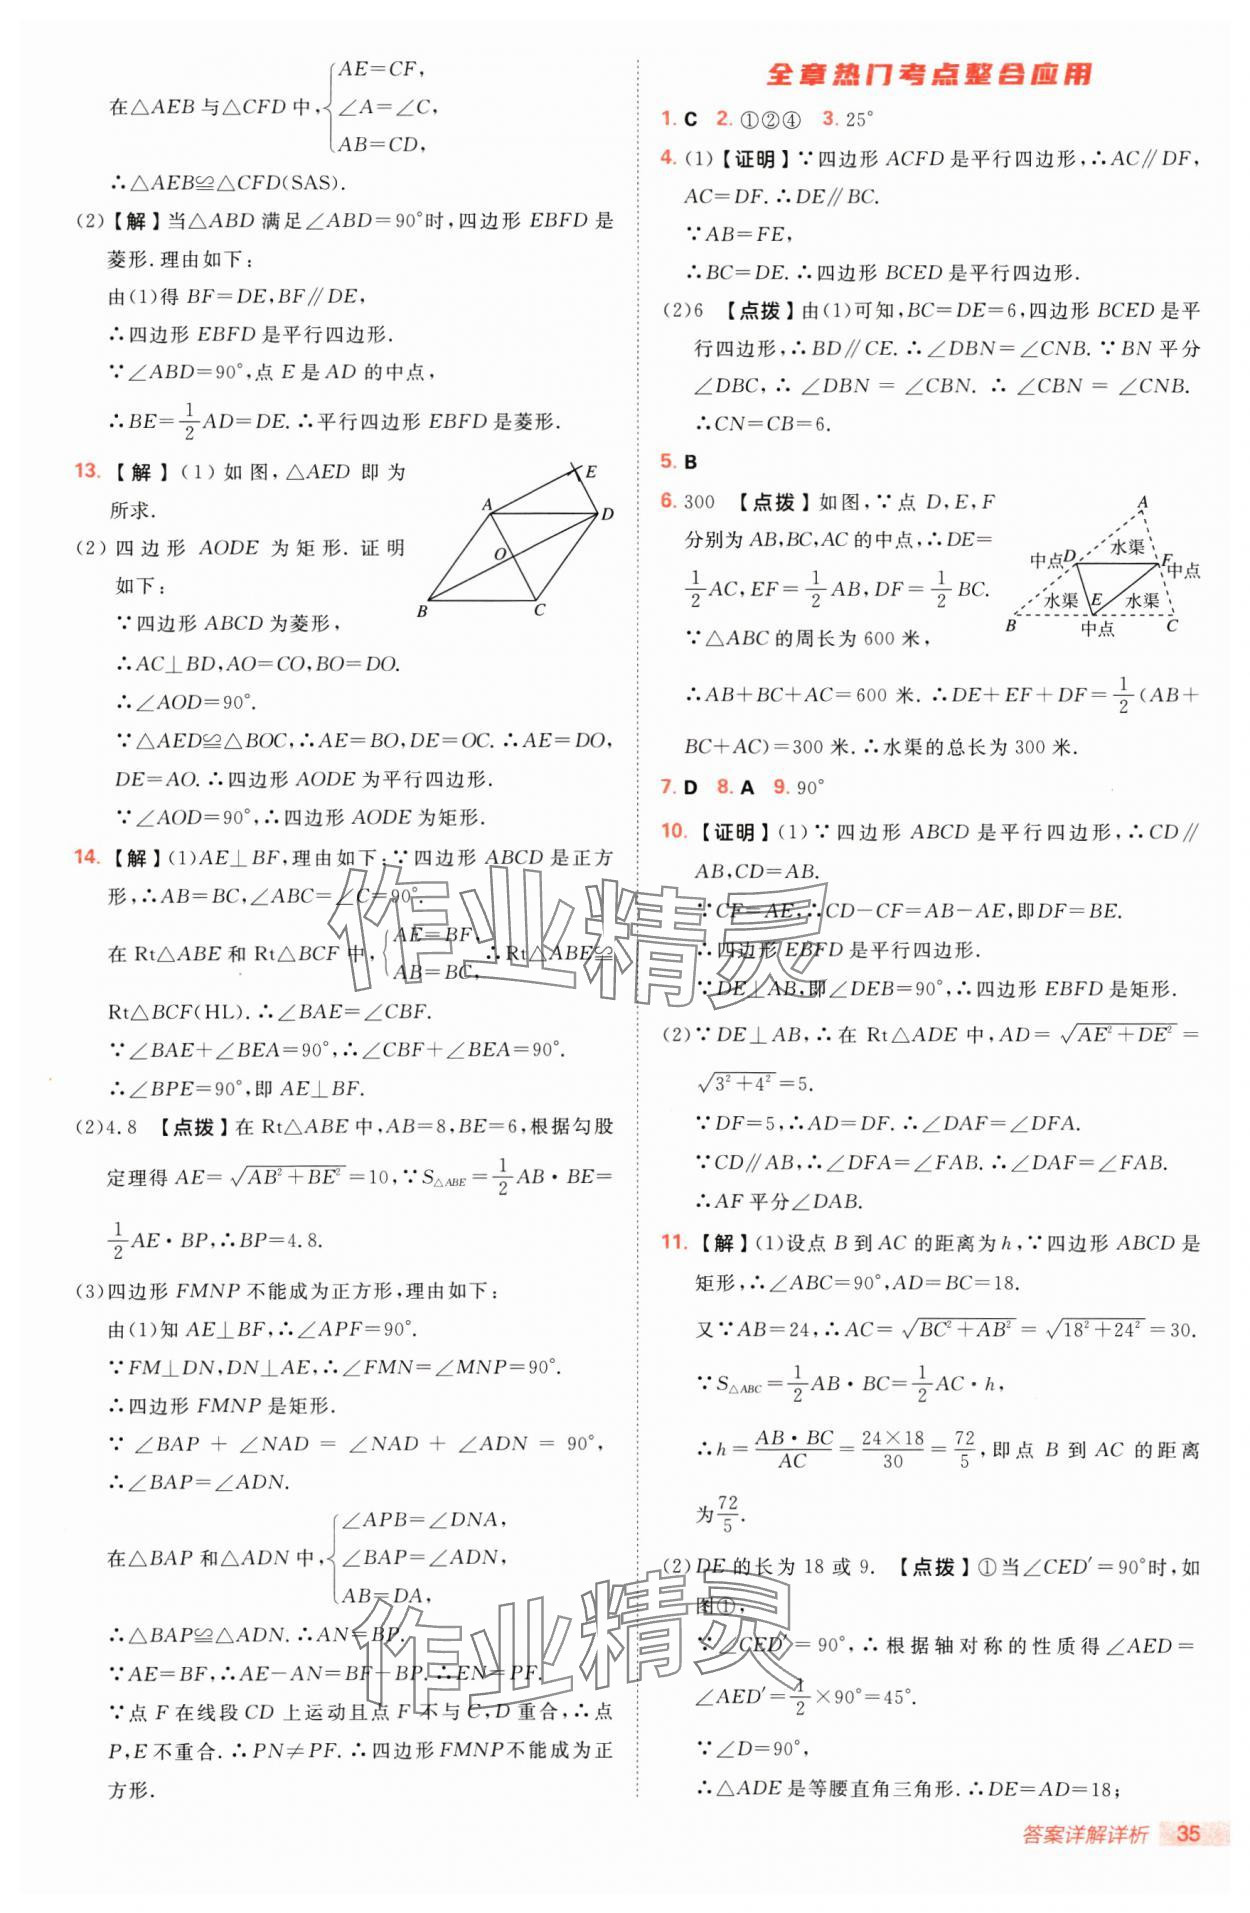 在△AEB与△CFD中,{AE=CF, ∠A=∠C, AB=CD,
∴△AEB≌△CFD(SAS).
(2)【解】当△ABD 满足∠ABD=90°时,四边形 EBFD 是
菱形.理由如下:
由(1)得 BF=DE,BF∥DE,
∴四边形 EBFD 是平行四边形.
∵∠ABD=90°,点 E 是 AD 的中点,
∴BE=1/2AD=DE.∴平行四边形 EBFD 是菱形.
13.【解】(1)如图,△AED 即为
所求.
(2)四边形 AODE 为矩形.证明
如下:
∵四边形 ABCD 为菱形,
∴AC⊥BD,AO=CO,BO=DO.
∴∠AOD=90°.
∵△AED≌△BOC,∴AE=BO,DE=OC.∴AE=DO,
DE=AO.∴四边形 AODE 为平行四边形.
∵∠AOD=90°,∴四边形 AODE 为矩形.
A
E
D
O
B
C
14.【解】(1)AE⊥BF,理由如下:∵四边形 ABCD 是正方
形,∴AB=BC,∠ABC=∠C=90°.
在 Rt△ABE 和 Rt△BCF 中,{AE=BF, AB=BC, ∴Rt△ABE≌
Rt△BCF(HL).∴∠BAE=∠CBF.
∵∠BAE+∠BEA=90°,∴∠CBF+∠BEA=90°.
∴∠BPE=90°,即 AE⊥BF.
(2)4.8 【点拨】在 Rt△ABE 中,AB=8,BE=6,根据勾股
定理得 AE=√(AB²+BE²)=10,∵S△ABE=1/2AB·BE=
1/2AE·BP,∴BP=4.8.
(3)四边形 FMNP 不能成为正方形,理由如下:
由(1)知 AE⊥BF,∴∠APF=90°.
∵FM⊥DN,DN⊥AE,∴∠FMN=∠MNP=90°.
∴四边形 FMNP 是矩形.
∵∠BAP+∠NAD=∠NAD+∠ADN=90°,
∴∠BAP=∠ADN.
在△BAP 和△ADN 中,{∠APB=∠DNA, ∠BAP=∠ADN, AB=DA,
∴△BAP≌△ADN.∴AN=BP.
∵AE=BF,∴AE-AN=BF-BP.∴EN=PF.
∵点 F 在线段 CD 上运动且点 F 不与 C,D 重合,∴点
P,E 不重合.∴PN≠PF.∴四边形 FMNP 不能成为正
方形.
全章热门考点整合应用
1. C 2. ①②④ 3. 25°
4.(1)【证明】∵四边形 ACFD 是平行四边形,∴AC∥DF,
AC=DF.∴DE∥BC.
∵AB=FE,
∴BC=DE.∴四边形 BCED 是平行四边形.
(2)6 【点拨】由(1)可知,BC=DE=6,四边形 BCED 是平
行四边形,∴BD∥CE.∴∠DBN=∠CNB.∵BN 平分
∠DBC,∴∠DBN=∠CBN.∴∠CBN=∠CNB.
∴CN=CB=6.
5. B
6. 300 【点拨】如图,∵点 D,E,F
分别为 AB,BC,AC 的中点,∴DE=
1/2AC,EF=1/2AB,DF=1/2BC.
∵△ABC 的周长为 600 米,
∴AB+BC+AC=600 米.∴DE+EF+DF=1/2(AB+
BC+AC)=300 米.∴水渠的总长为 300 米.
A
中点 D 水渠 F 中点
水渠 E 水渠
B 中点 C
7. D 8. A 9. 90°
10.【证明】(1)∵四边形 ABCD 是平行四边形,∴CD∥
AB,CD=AB.
∵CF=AE,∴CD-CF=AB-AE,即DF=BE.
∴四边形 EBFD 是平行四边形.
∵DE⊥AB,即∠DEB=90°,∴四边形 EBFD 是矩形.
(2)∵DE⊥AB,∴在 Rt△ADE 中,AD=√(AE²+DE²)=
√(3²+4²)=5.
∵DF=5,∴AD=DF.∴∠DAF=∠DFA.
∵CD∥AB,∴∠DFA=∠FAB.∴∠DAF=∠FAB.
∴AF 平分∠DAB.
11.【解】(1)设点 B 到 AC 的距离为 h,∵四边形 ABCD 是
矩形,∴∠ABC=90°,AD=BC=18.
又∵AB=24,∴AC=√(BC²+AB²)=√(18²+24²)=30.
∵S△ABC=1/2AB·BC=1/2AC·h,
∴h=AB·BC/AC=24×18/30=72/5,即点 B 到 AC 的距离
为72/5.
(2)DE 的长为 18 或 9. 【点拨】①当∠CED′=90°时,如
图①,
∵∠CED′=90°,∴根据轴对称的性质得∠AED=
∠AED′=1/2×90°=45°.
∵∠D=90°,
∴△ADE 是等腰直角三角形.∴DE=AD=18;
作业精灵
作业精灵
答案详解详析 35